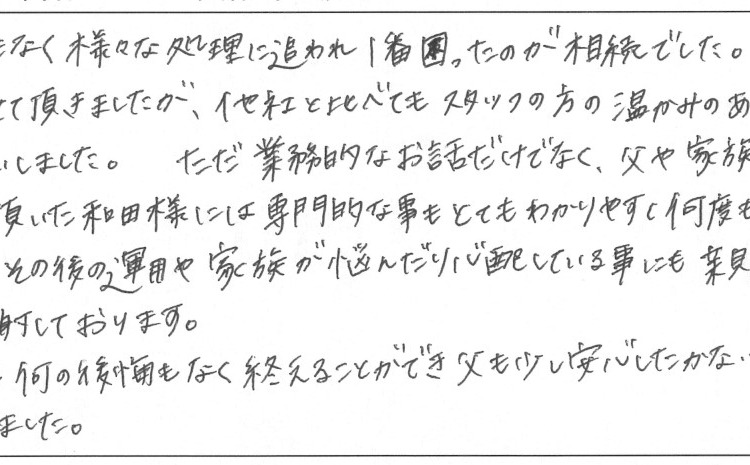 もなく様々な処理に追われ1番困ったのが相続でした。
せて頂きましたが、他社と比べてもスタッフの方の温かみのあ
いしました。 ただ業務的なお話だけでなく、父や家族
頂いた和田様には専門的な事もとてもわかりやすく何度も
その後の運用や家族が悩んだり心配している事にも親
謝しております。
何の後悔もなく終えることができ父も少し安心したかな
ました。